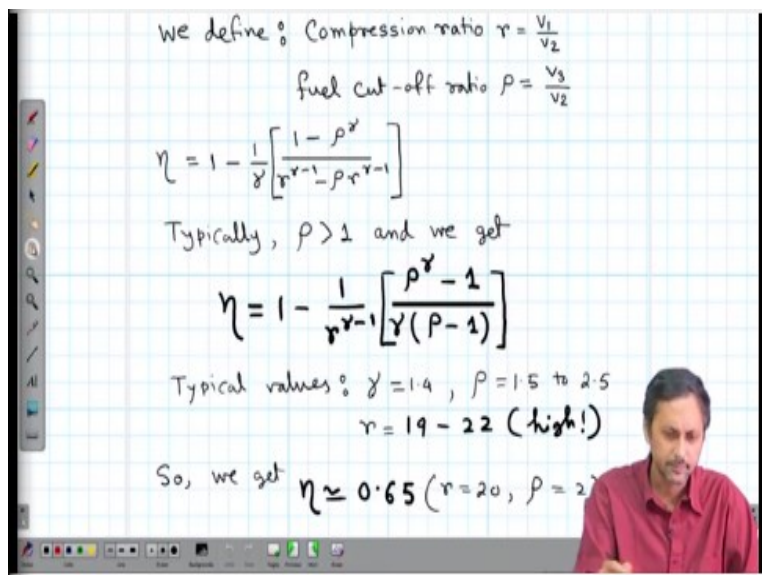 We define : Compression ratio r = V₁/V₂
fuel cut-off ratio ρ = V₃/V₂
η = 1 - 1/γ [ (1 - ρ^γ) / (r^(γ-1) - ρ r^(γ-1)) ]
Typically, ρ > 1 and we get
η = 1 - 1/r^(γ-1) [ (ρ^γ - 1) / (γ(ρ - 1)) ]
Typical values : γ = 1.4 , ρ = 1.5 to 2.5
r = 19 - 22 (high!)
So, we get η ≃ 0.65 (r = 20, ρ = 2)